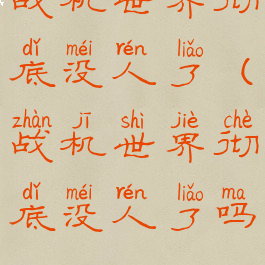 战机世界彻
dǐ méi rén liǎo
底没人了（
zhàn jī shì jiè chè
战机世界彻
dǐ méi rén liǎo ma
底没人了吗